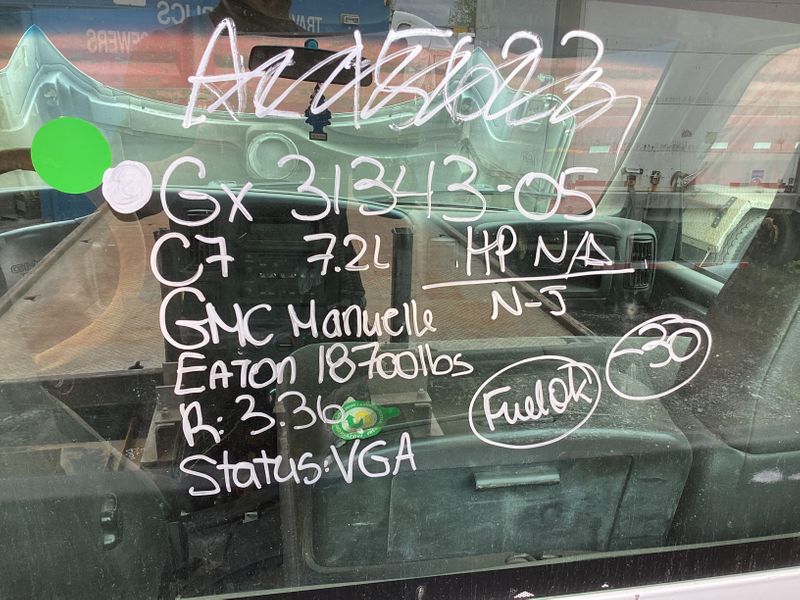 Gx 31343-05
C7 7.2L HP NA
N-J
GMC Manuelle
EATON 18700lbs
-30
R: 3.36
Fuel Ok
Status: VGA